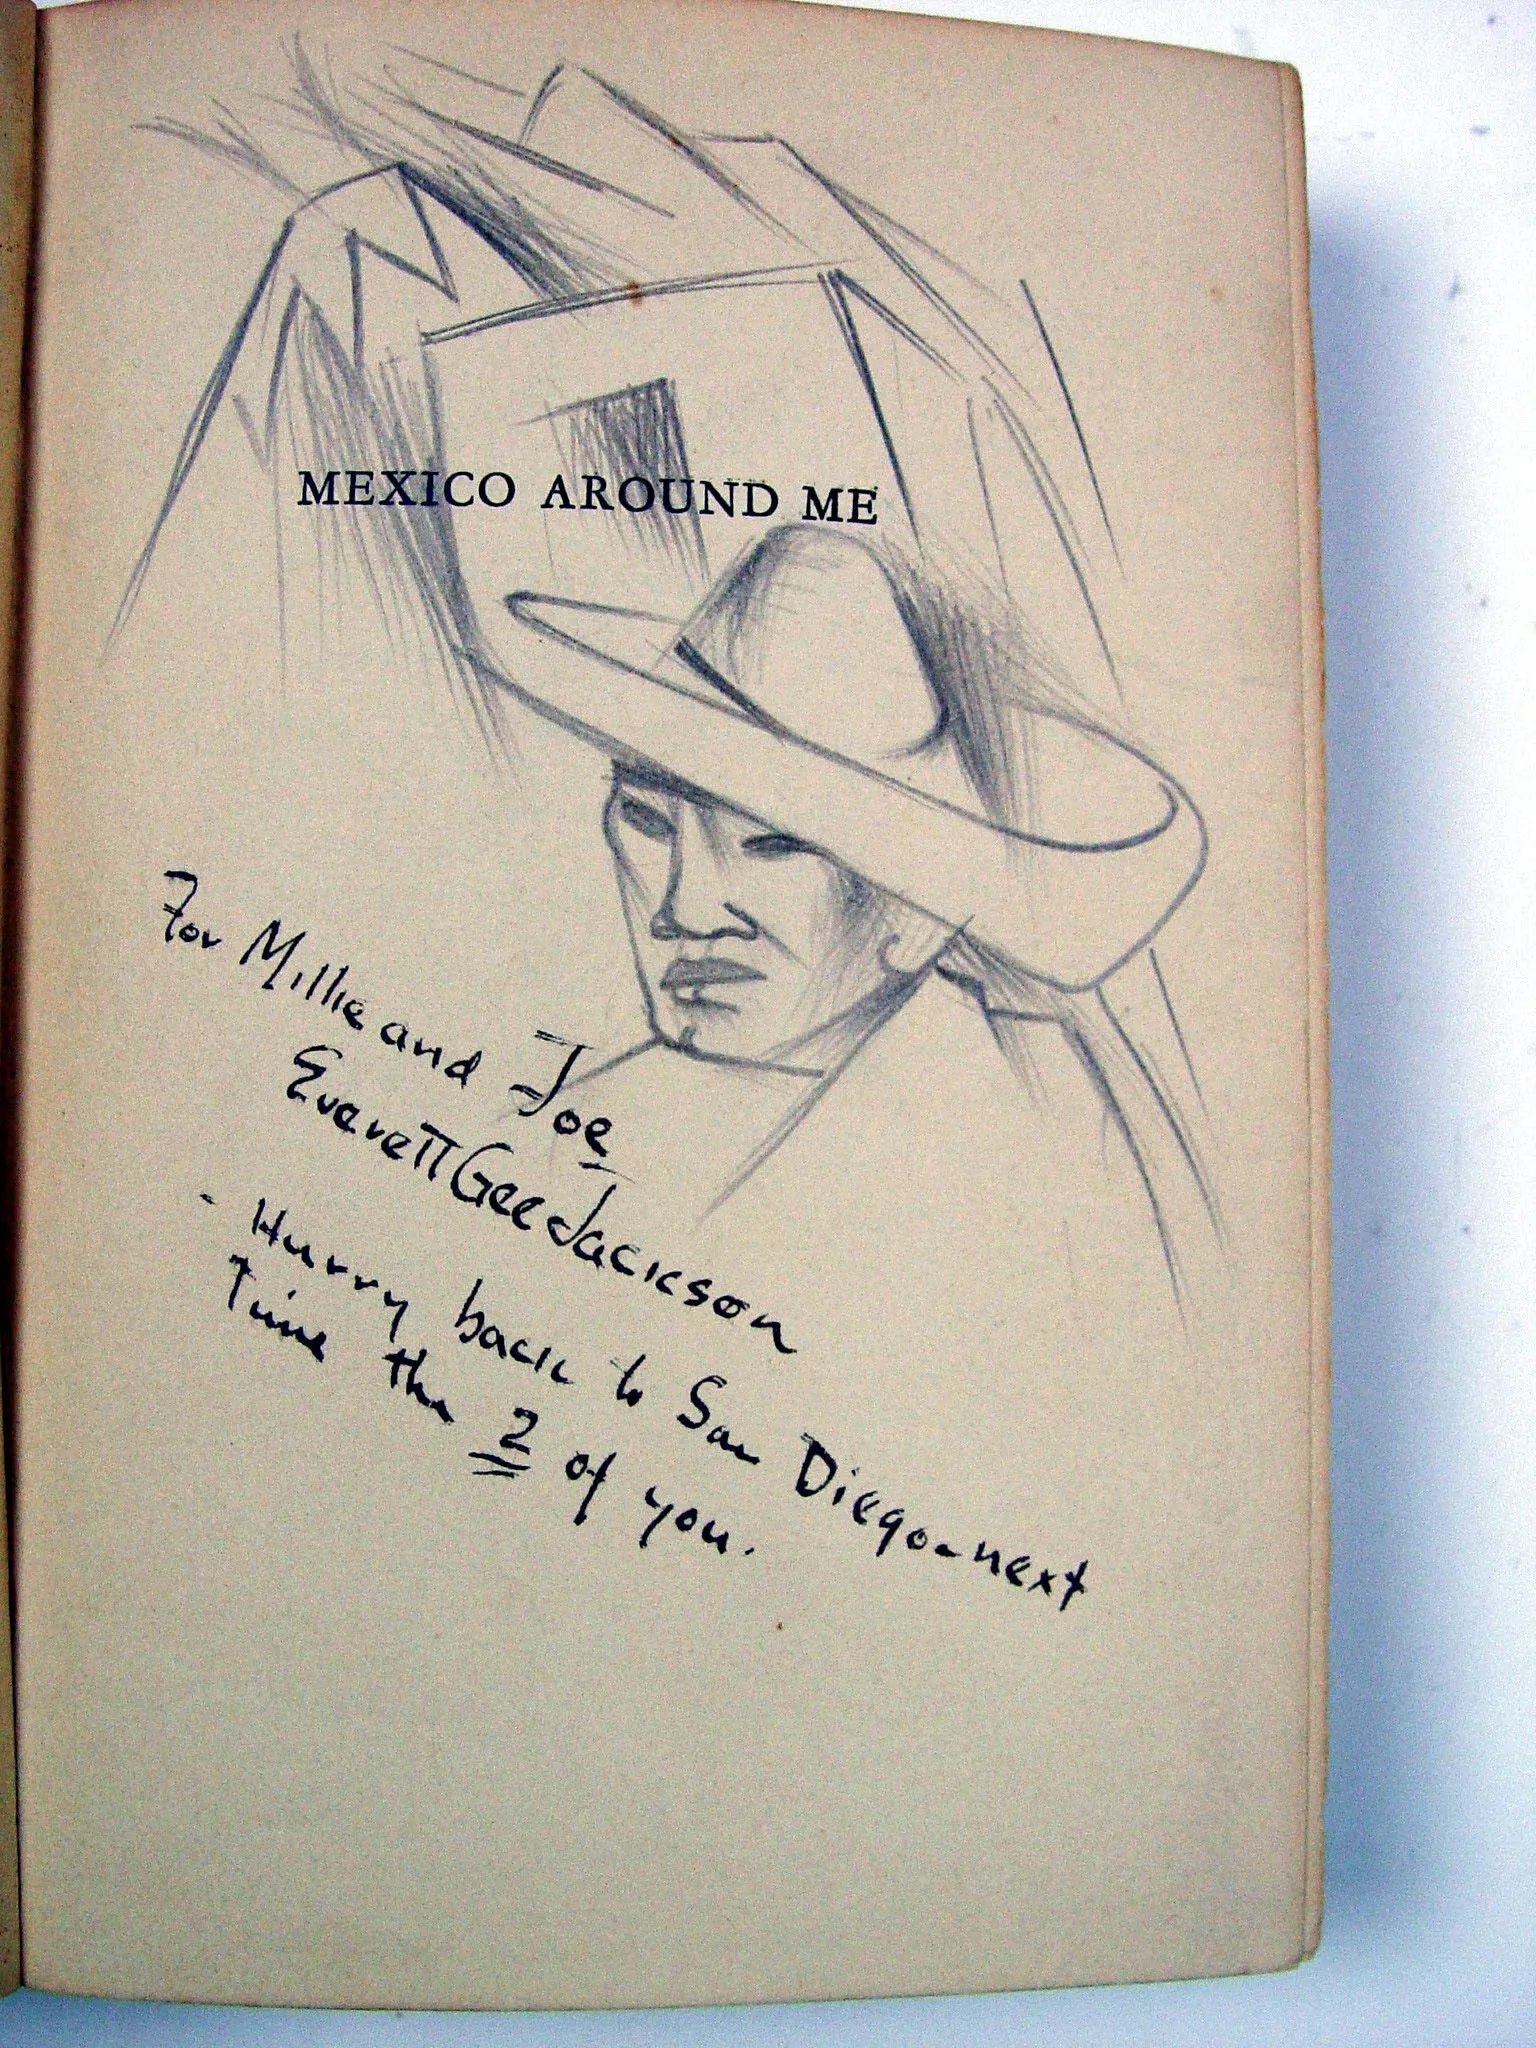 MEXICO AROUND ME
For Millie and Joe
Everett Gee Jackson
- Hurry back to San Diego - next
Time the 2 of you.